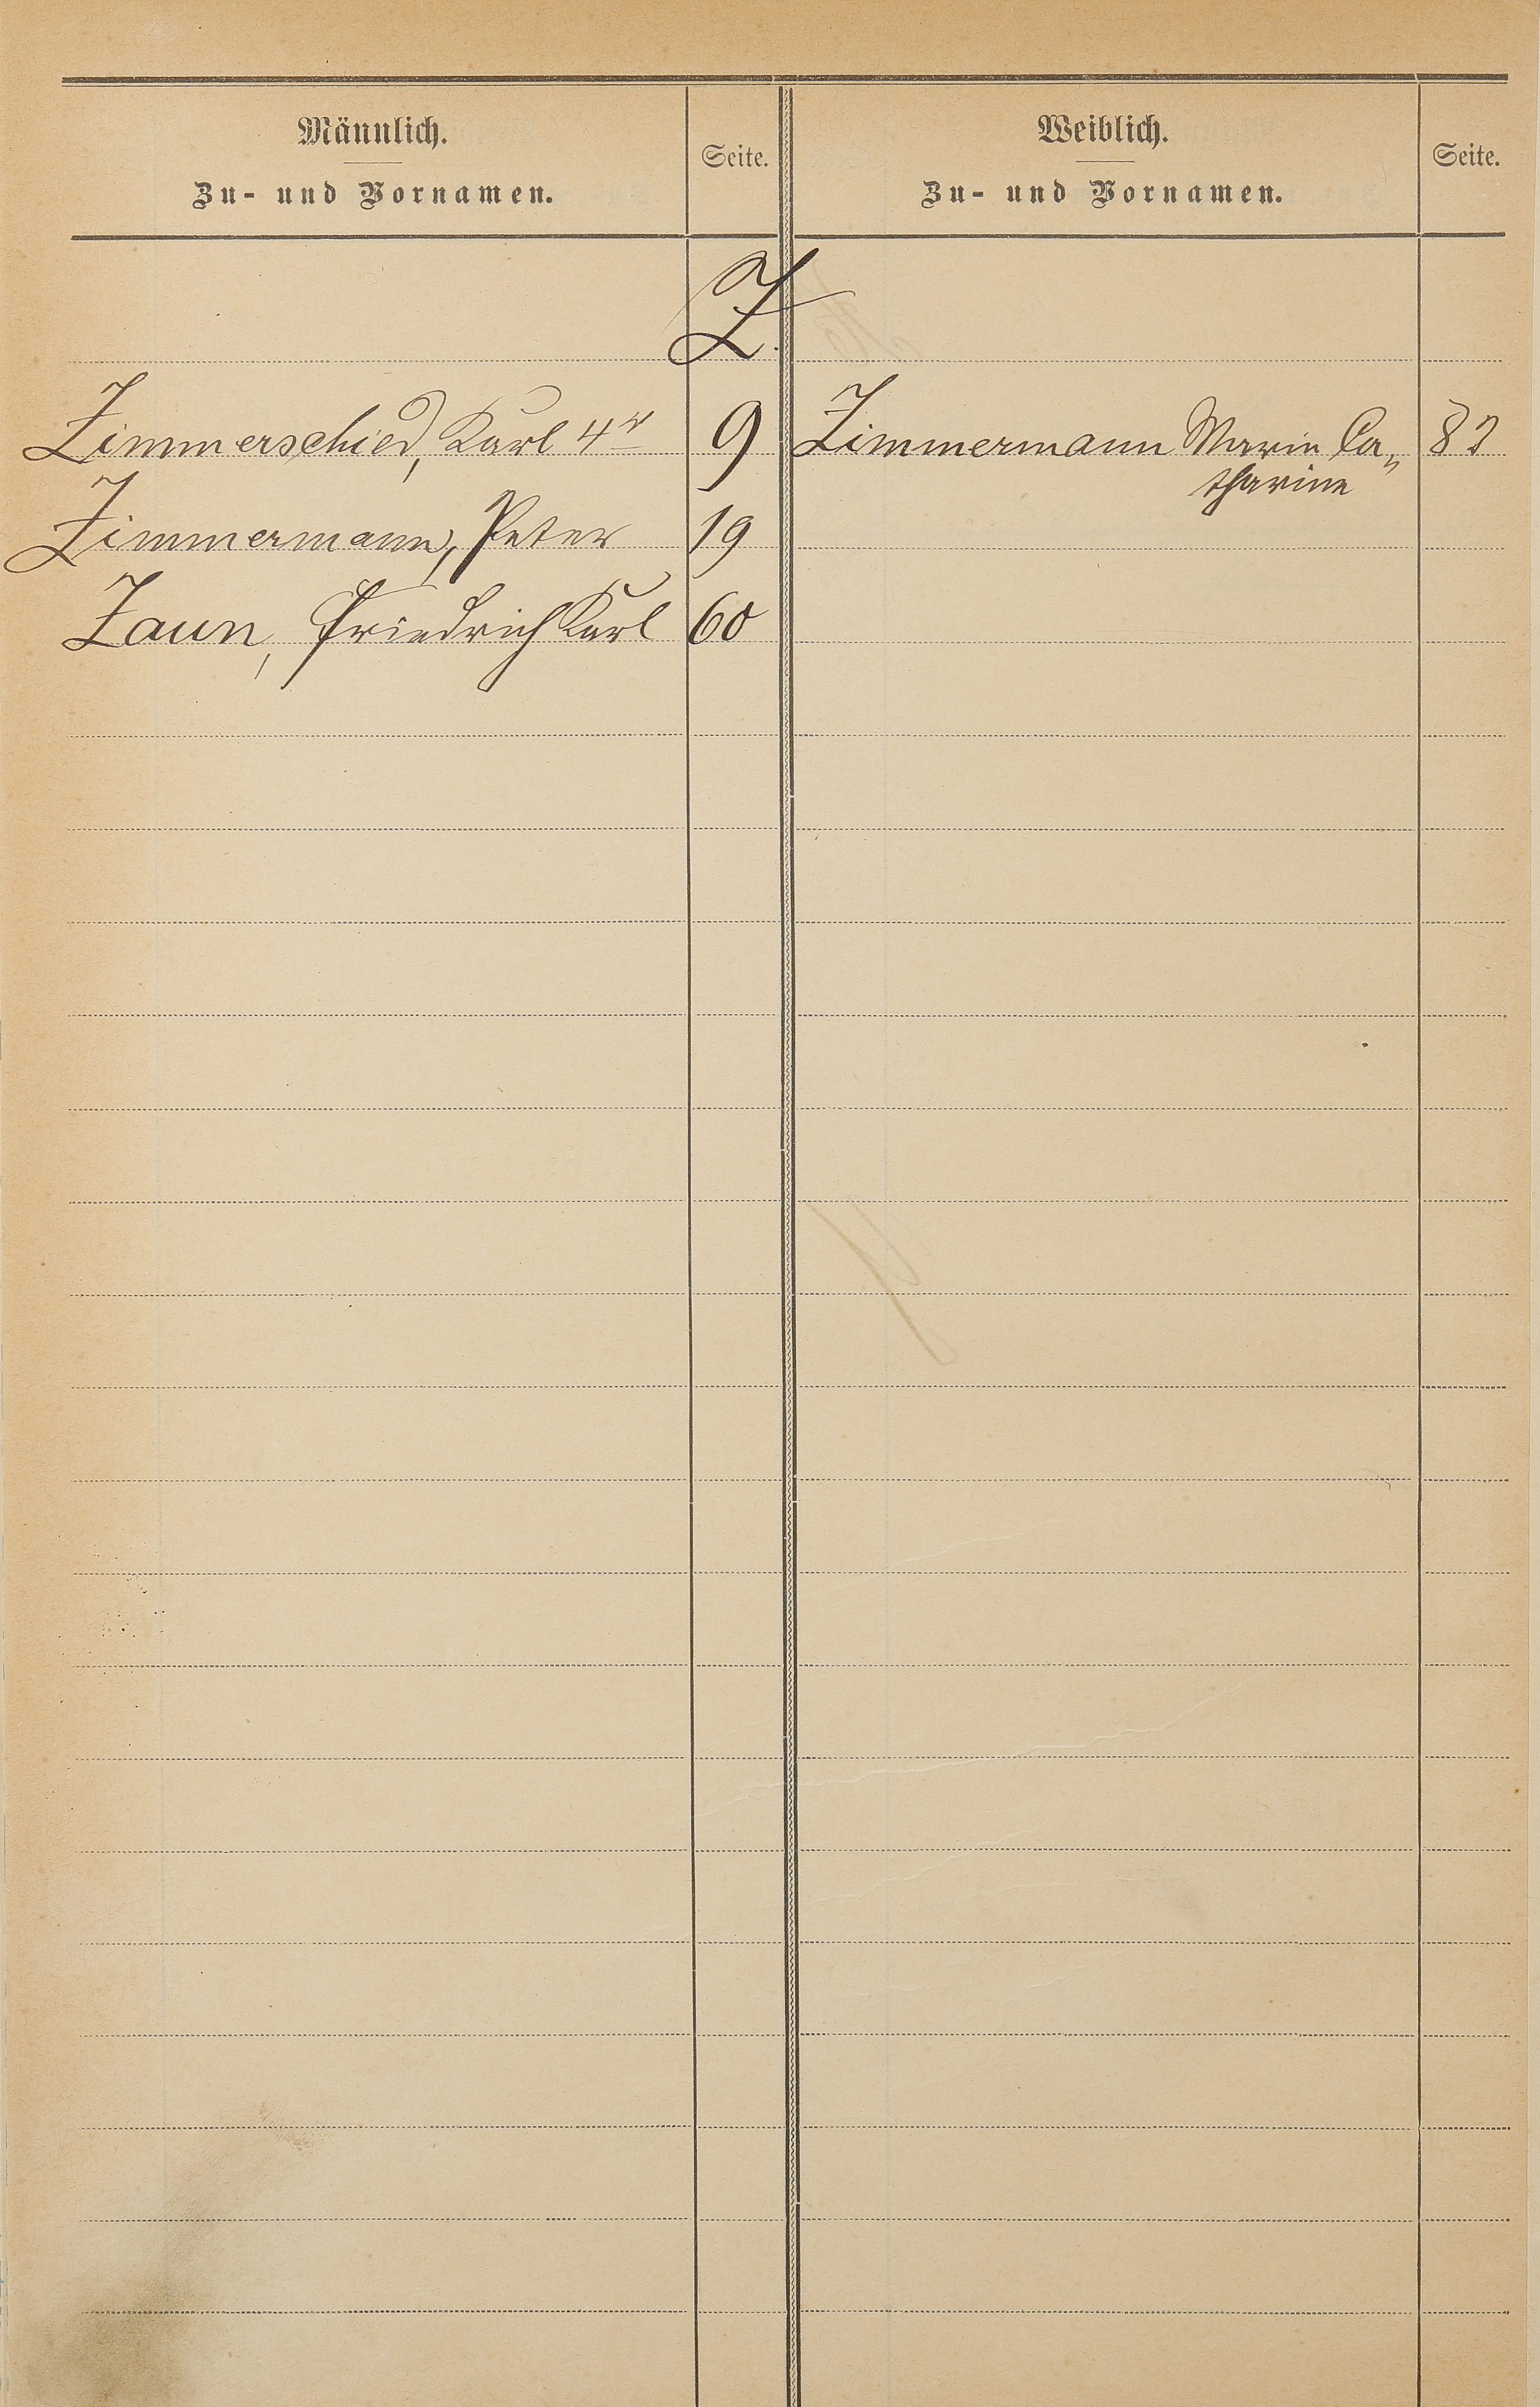 Männlich.
Zu- und Vornamen.
Seite.
Weiblich.
Zu- und Vornamen.
Seite.
Z.
Zimmerschied, Karl 4r 9
Zimmermann Marie Ca-
tharine
Zimmermann, Peter 19
Zaun, Friedrich Karl 60